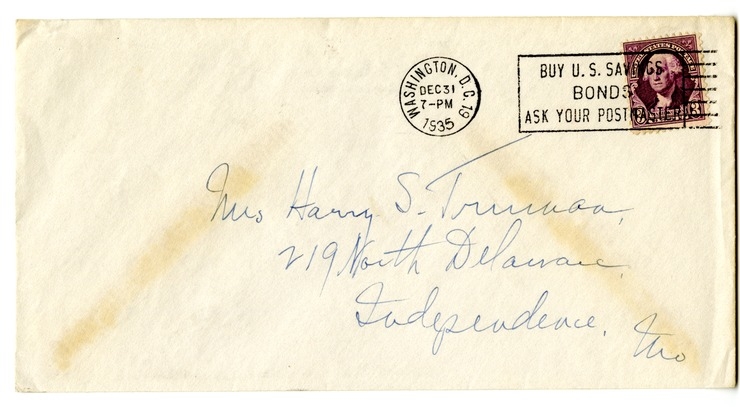 WASHINGTON, D.C. 19
DEC 31
7-PM
1935
BUY U.S. SAVINGS
BONDS
ASK YOUR POSTMASTER
3
Mrs Harry S. Truman,
219 North Delaware,
Independence,
Mo